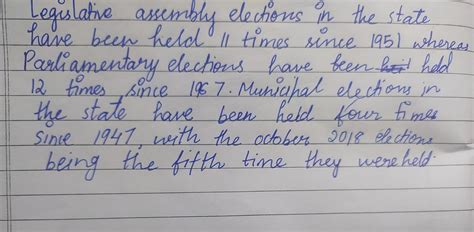 Legislative assembly elections in the state
have been held 11 times since 1951 whereas
Parliamentary elections have been held
12 times since 1967. Municipal elections in
the state have been held four times
since 1947, with the october 2018 elections
being the fifth time they were held.